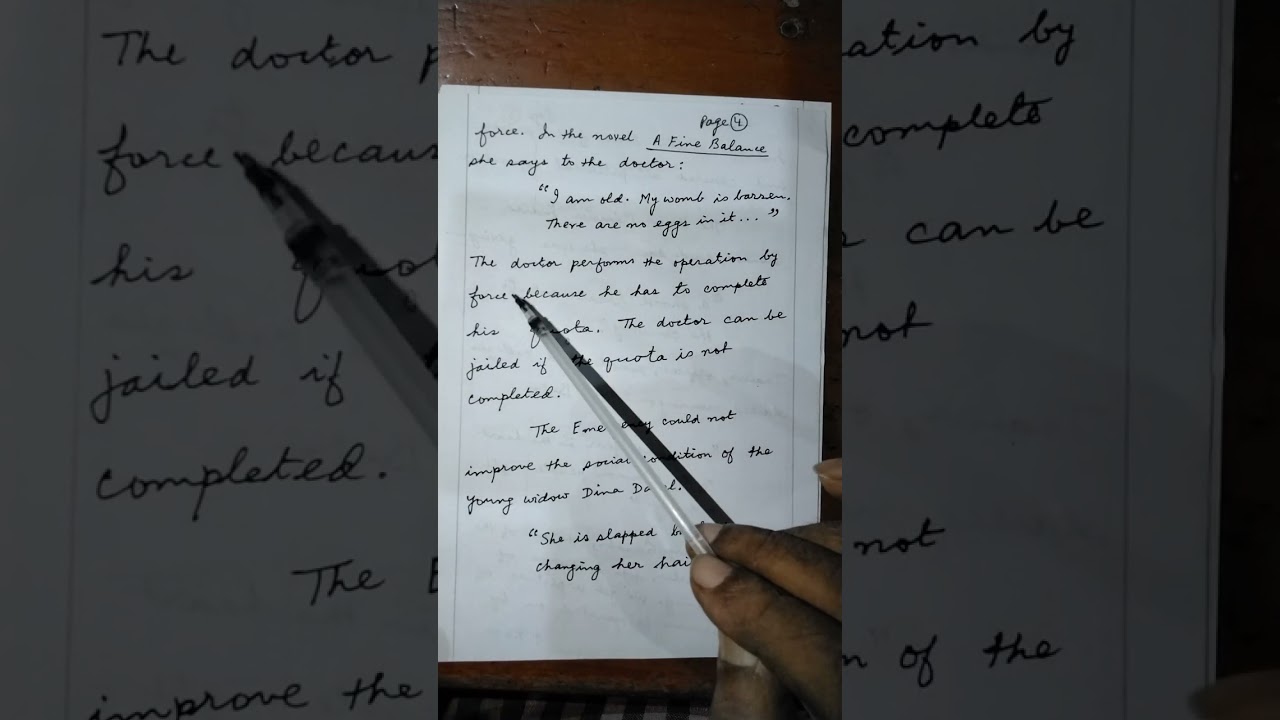 Page 4
force. In the novel A Fine Balance
she says to the doctor:
"I am old. My womb is barren.
There are no eggs in it..."
The doctor performs the operation by
force because he has to complete
his quota. The doctor can be
jailed if the quota is not
completed.
The Emergency could not
improve the social condition of the
young widow Dina Dalal.
"She is slapped
changing her